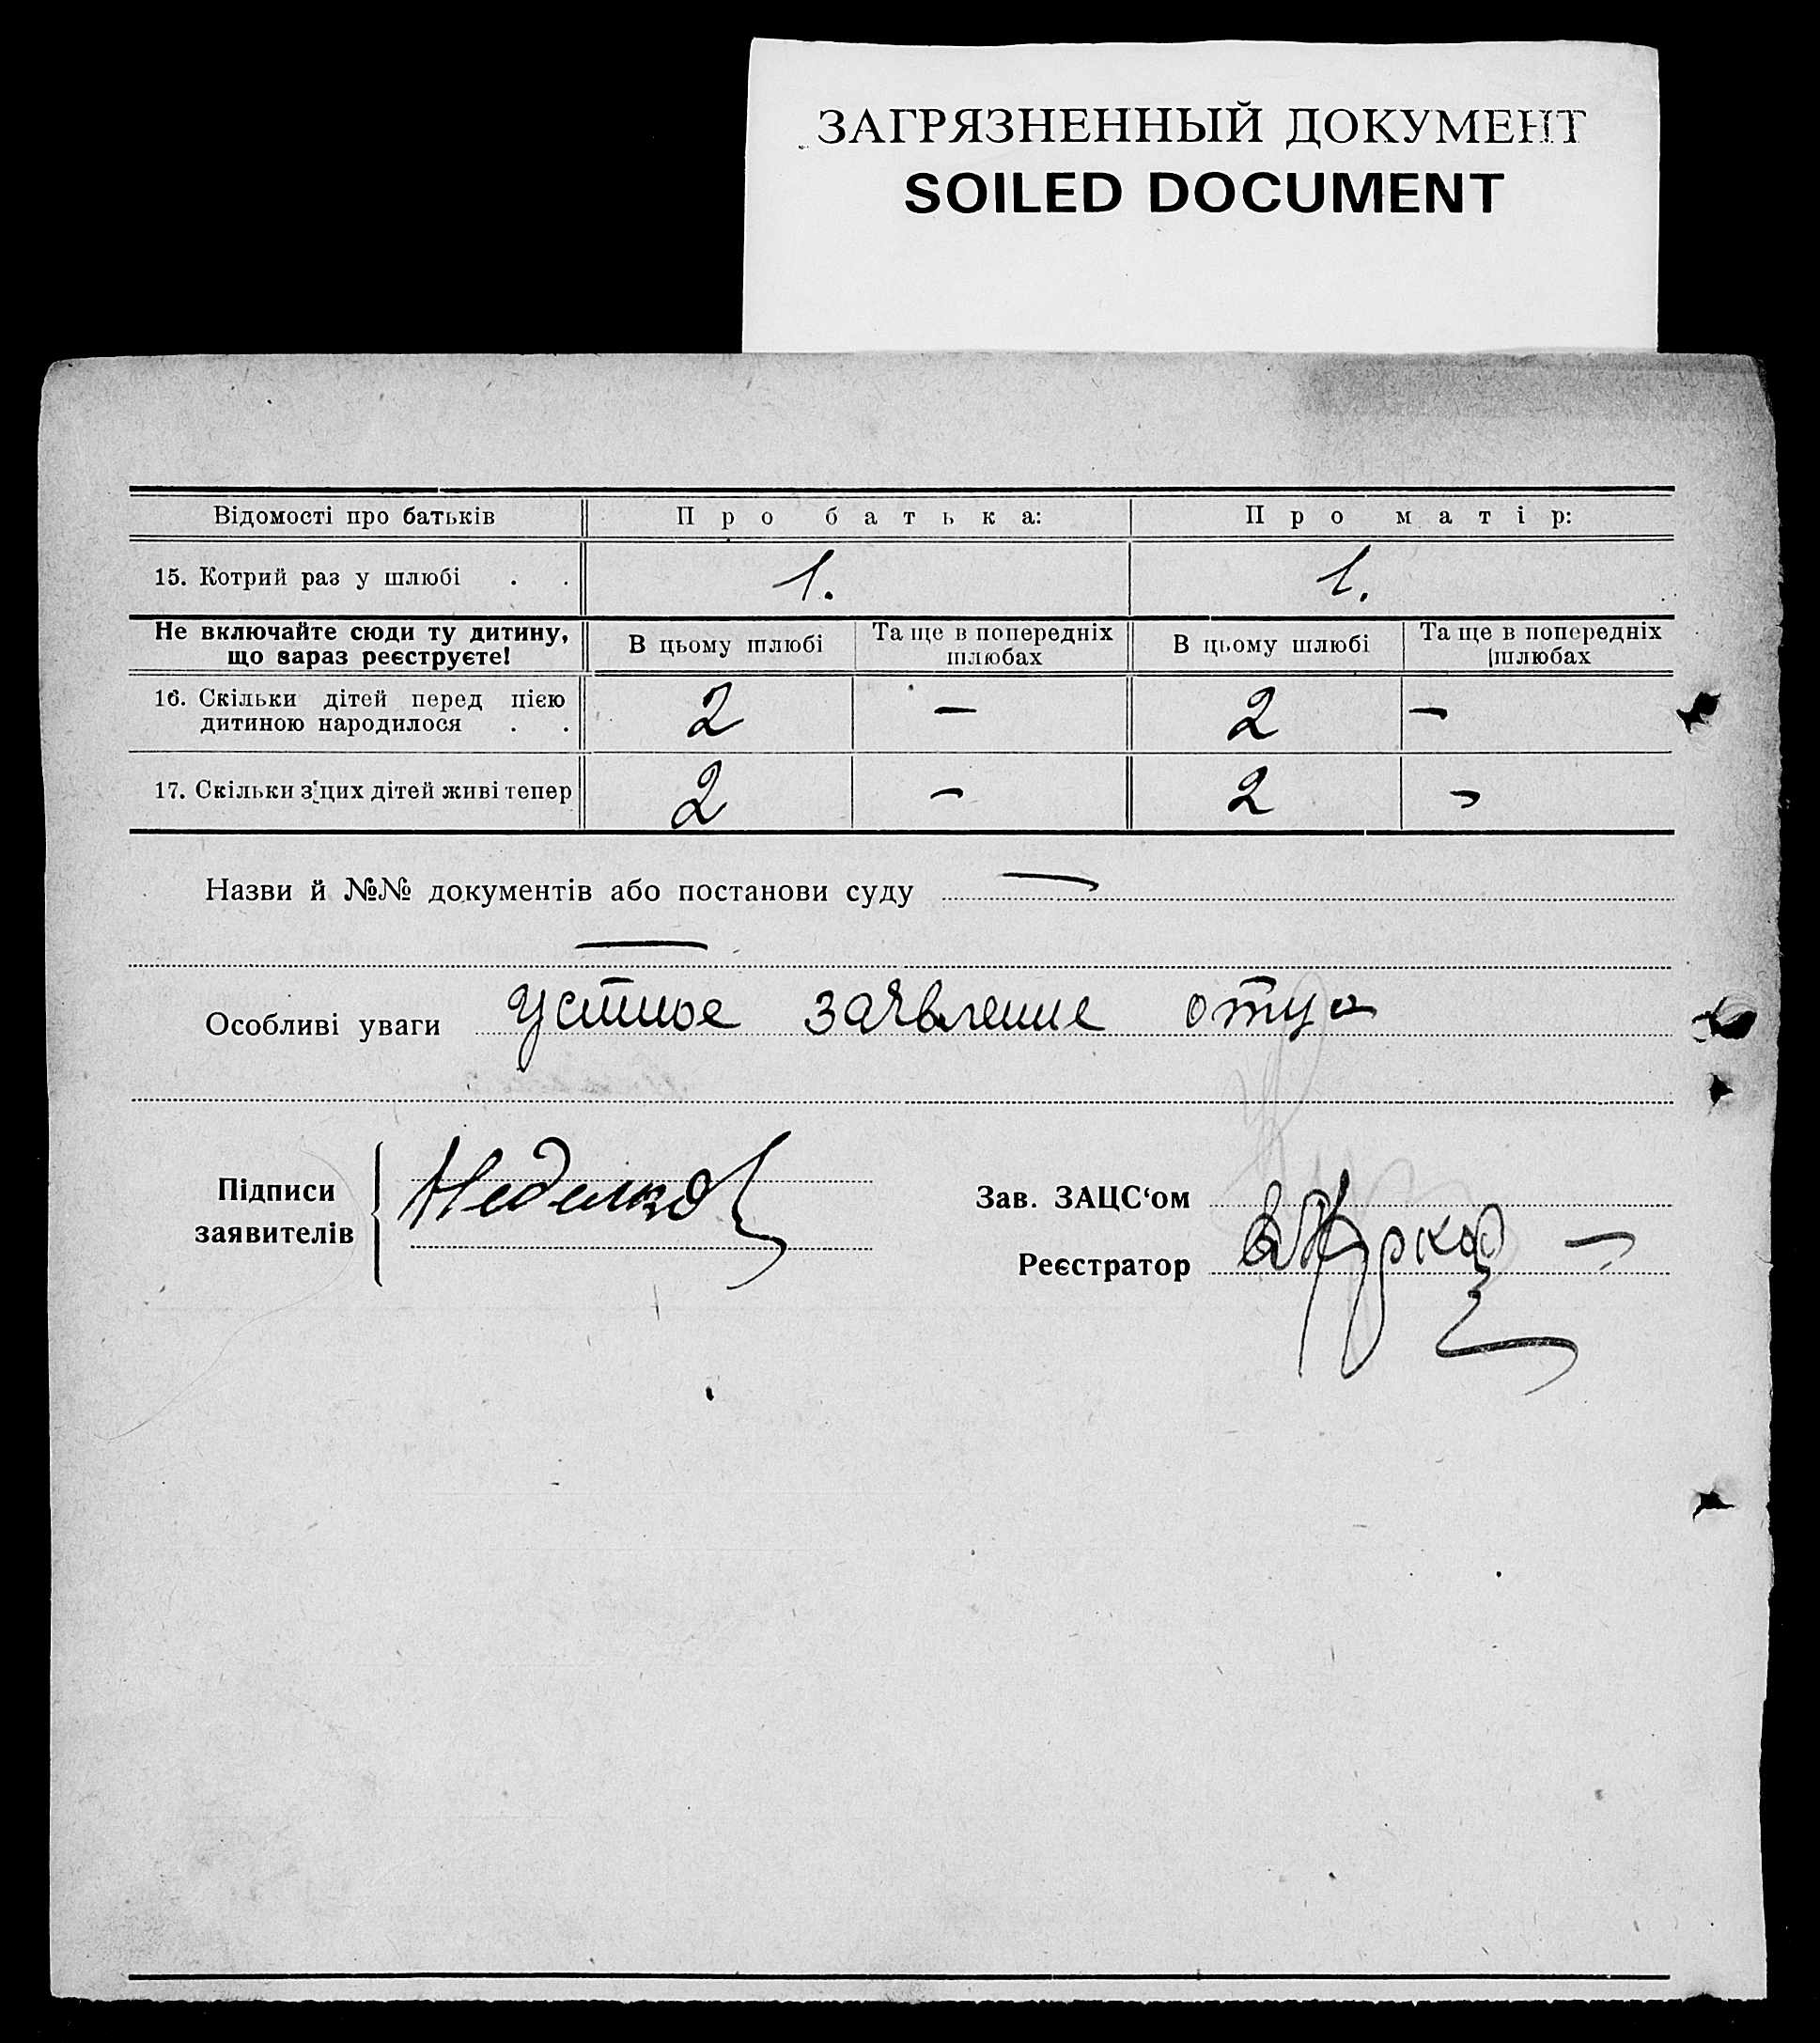 ЗАГРЯЗНЕННЫЙ ДОКУМЕНТ
SOILED DOCUMENT
Відомості про батьків Про батька: Про матір:
15. Котрий раз у шлюбі . . 1. 1.
Не включайте сюди ту дитину, що зараз реєструєте! В цьому шлюбі Та ще в попередніх шлюбах В цьому шлюбі Та ще в попередніх шлюбах
16. Скільки дітей перед цією дитиною народилося . . 2 — 2 —
17. Скільки з цих дітей живі тепер 2 — 2 —
Назви й №№ документів або постанови суду —
—
Особливі уваги устное заявление отца
Підписи заявителів
Зав. ЗАЦС‘ом
Реєстратор